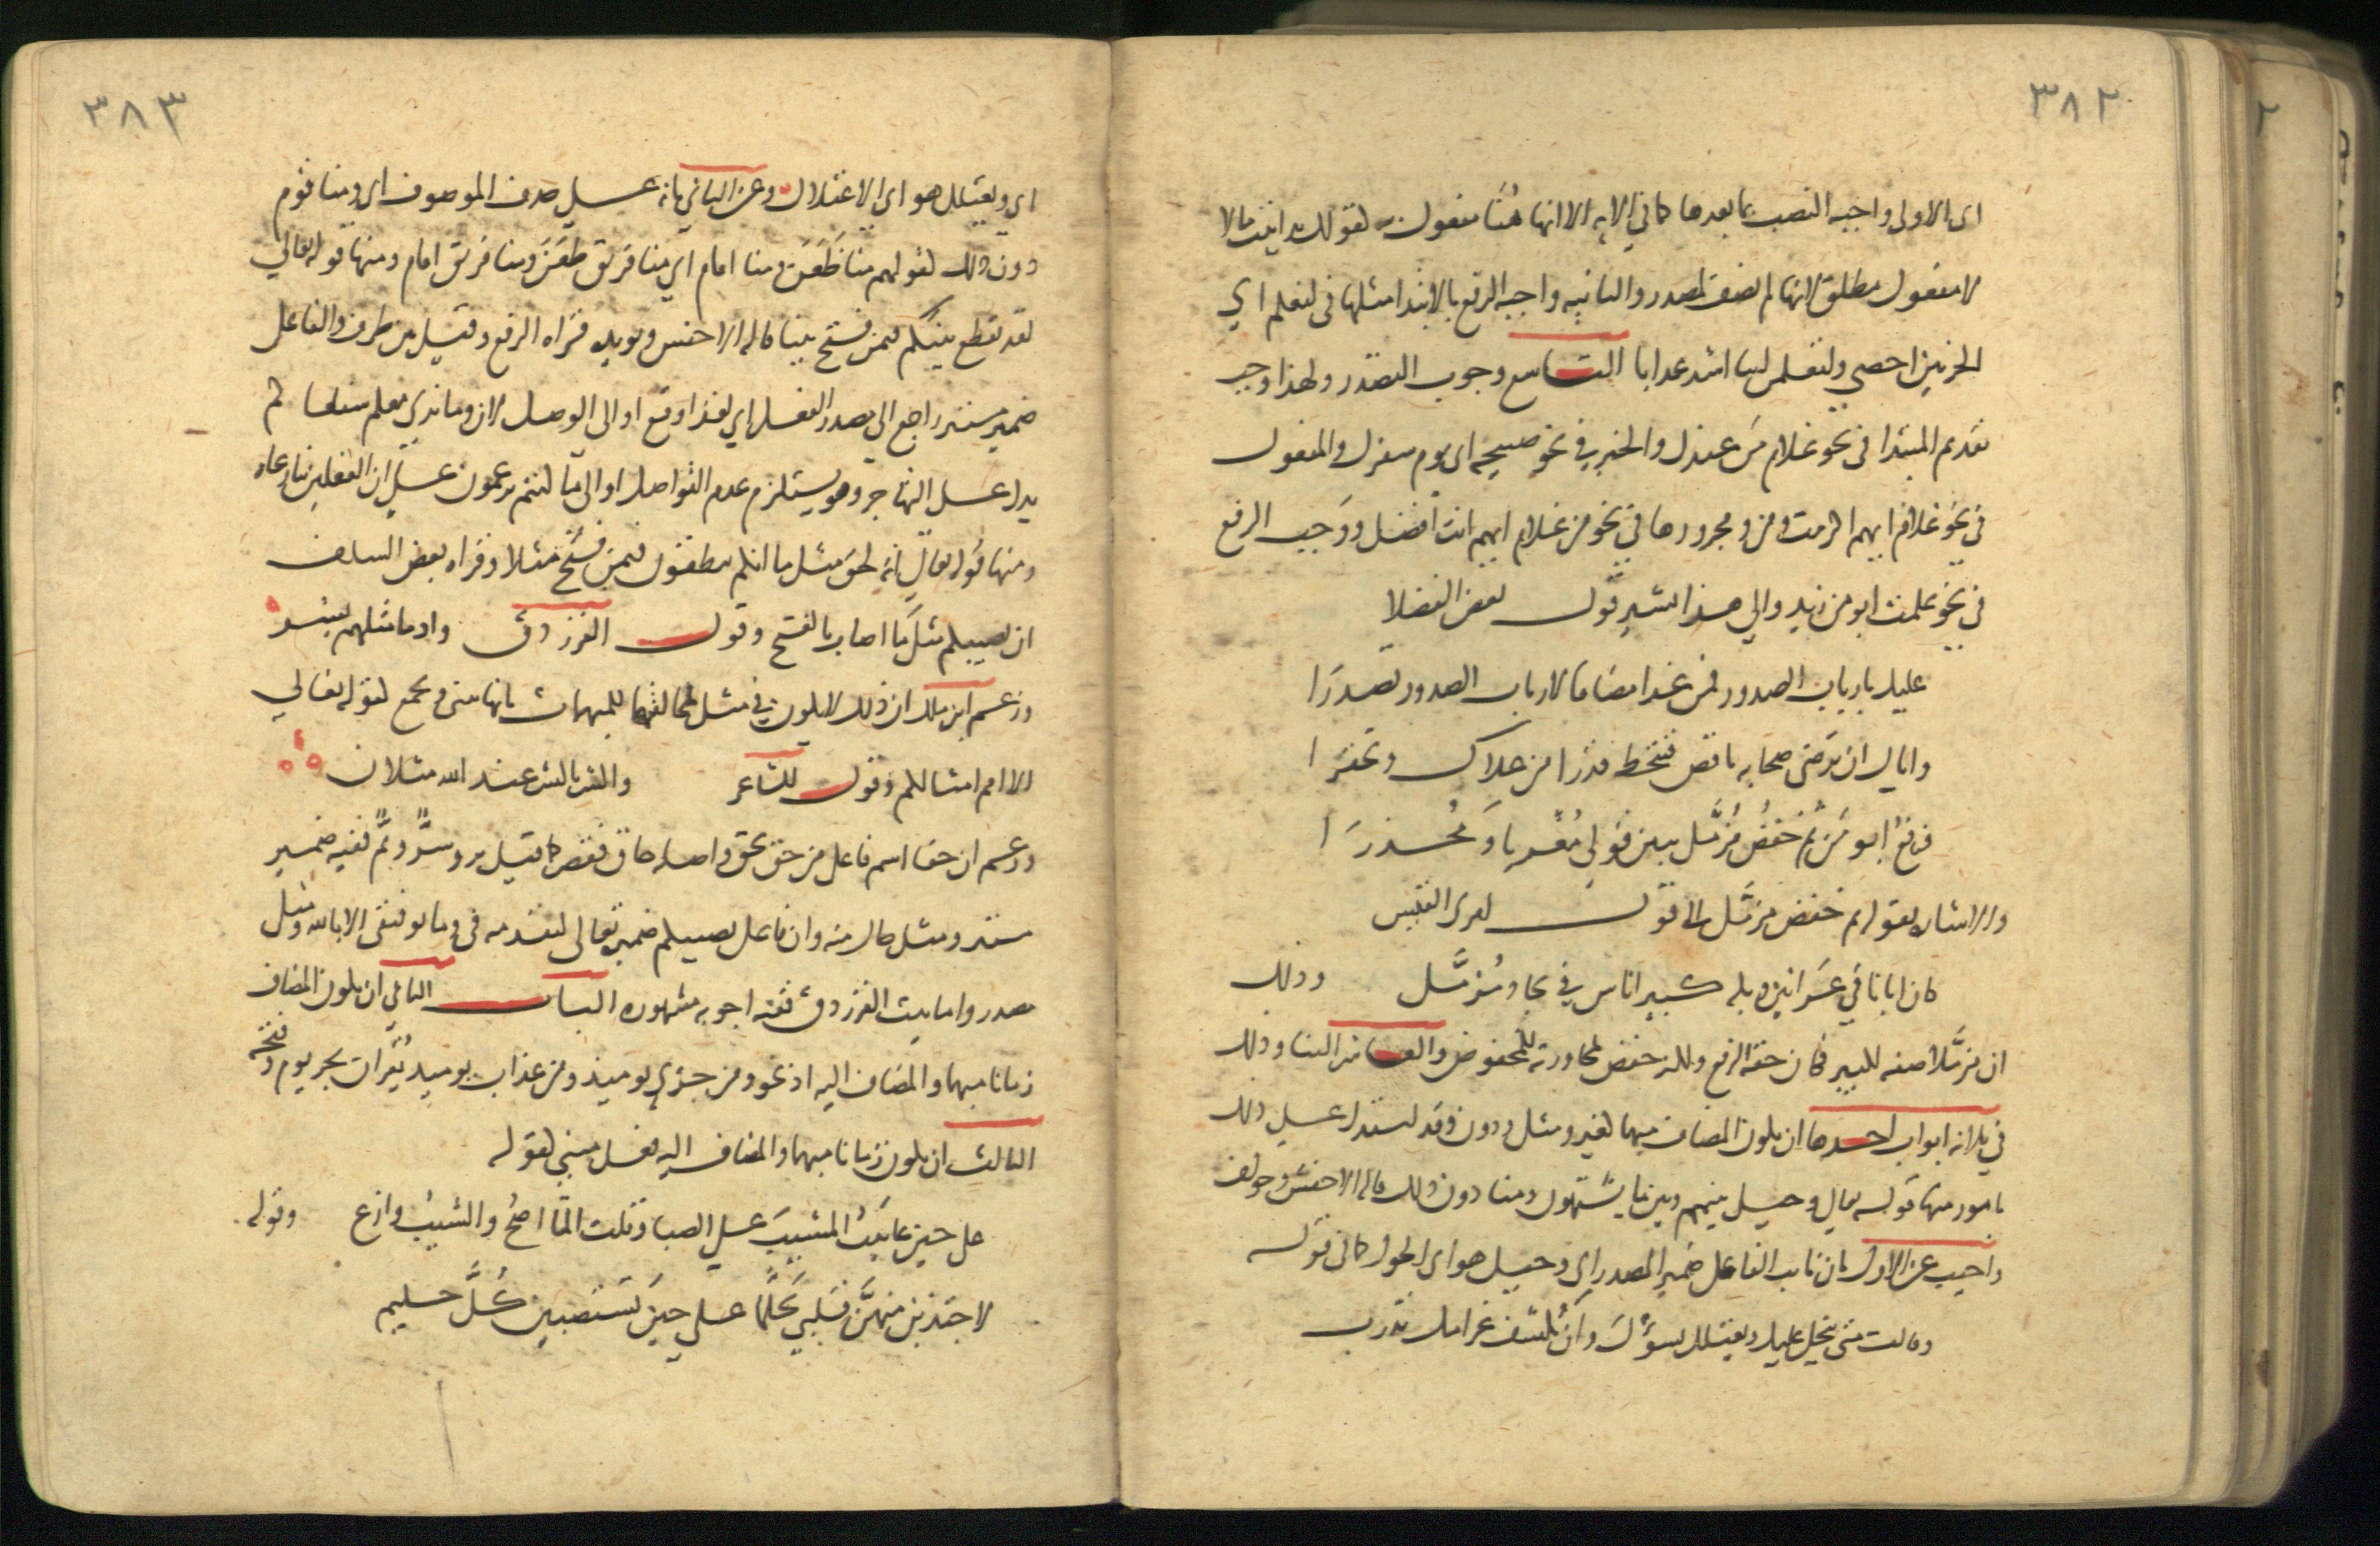 ٣٨٢
اى الاولى واجبه النصب بما بعدها كما في الايه الا انها هنا مفعول به لقولك تداينت مالا
لا مفعول مطلق لانها لم تضف لمصدر والثانيه واجبه الرفع بالابتدا مثلها فى لنعلم اي
الحزبين احصي ولتعلمن اينا اشد عذابا التاسع وجوب التصدر ولهذا وجب
تقديم المبتدا فى نحو غلام من عندك والخبر في نحو صبيحه اى يوم سفرك والمفعول
في نحو غلام ايهم اكرمت ومن ومجرورها في نحو من غلام ايهم انت افضل ووجب الرفع
في نحو علمت ابو من زيد والي هذا اشير قول بعض الفضلا
عليك بارباب الصدور فمن غدا مضافا لارباب الصدور تصدرا
واياك ان ترضى صحابه ناقص فتنحط قدرا من علاك وتحقرا
فرفع ابو من ثم خفض مزمل يبين قولي مغريا ومحذرا
والاشاره بقوله ثم خفض مزمل الى قول امرى القيس
كان ابانا في عرانين وبله كبير اناس في بجاد مزمل وذلك
ان مزملا صفه لكبير فكان حقه الرفع ولكنه خفض لمجاورته للمخفوض والعاشر البنا وذلك
في ثلاثه ابواب احدها ان يكون المضاف مبهما كغير ومثل ودون وقد استدل علي ذلك
بامور منها قوله تعالي وحيل بينهم وبين ما يشتهون ومنا دون ذلك قاله الاخفش وخولف
واجيب عن الاول بان نايب الفاعل ضمير المصدر اي وحيل هو اى الحول كما فى قوله
وقالت متى يبخل عليك ويعتلل يسؤك وان يكشف غرامك تدرب
٣٨٣
اي ويعتلل هو اى الاعتلال وعن الثاني بانه علي حذف الموصوف اى ومنا قوم
دون ذلك كقولهم منا ظعن ومنا اقام اي منا فريق ظعن ومنا فريق اقام ومنها قوله تعالي
لقد تقطع بينكم فيمن فتح بينا قاله الاخفش ويويده قراه الرفع وقيل بين ظرف والفاعل
ضمير مستتر راجع الى مصدر الفعل اي لقد وقع او الى الوصل لان وما نرى معكم شفعاكم
يدل علي التهاجر وهو يستلزم عدم التواصل او الى ما كنتم تزعمون علي ان الفعلين تنازعاه
ومنها قوله تعالي انه لحق مثل ما انكم تنطقون فيمن فتح مثلا وقراه بعض السلف
ان يصيبكم مثل ما اصاب بالفتح وقول الفرزدق واذ ما مثلهم بشر
وزعم ابن مالك ان ذلك لا يكون في مثل لمخالفتها للمبهمات بانها تثنى وتجمع لقوله تعالي
الا امم امثالكم وقول الشاعر والشر بالشر عند الله مثلان
وزعم ان حقا اسم فاعل من حق يحق واصله حاق فقصر كما قيل بر وسر ونم ففيه ضمير
مستتر ومثل حال منه وان فاعل يصيبكم ضمير تعالى لتقدمه فى وما توفيقى الا بالله ومثل
مصدر واما بيت الفرزدق ففيه اجوبه مشهوره الباب الثاني ان يكون المضاف
زمانا مبهما والمضاف اليه اذ نحو ومن خزي يوميذ ومن عذاب يوميذ يقران بجر يوم وفتحه
الثالث ان يكون زمانا مبهما والمضاف اليه فعل مبني كقوله
على حين عاتبت المشيب علي الصبا وقلت الما اصح والشيب وازع وقوله
لاجتذبن منهن قلبي تحلما علي حين يستصبين كل حليم